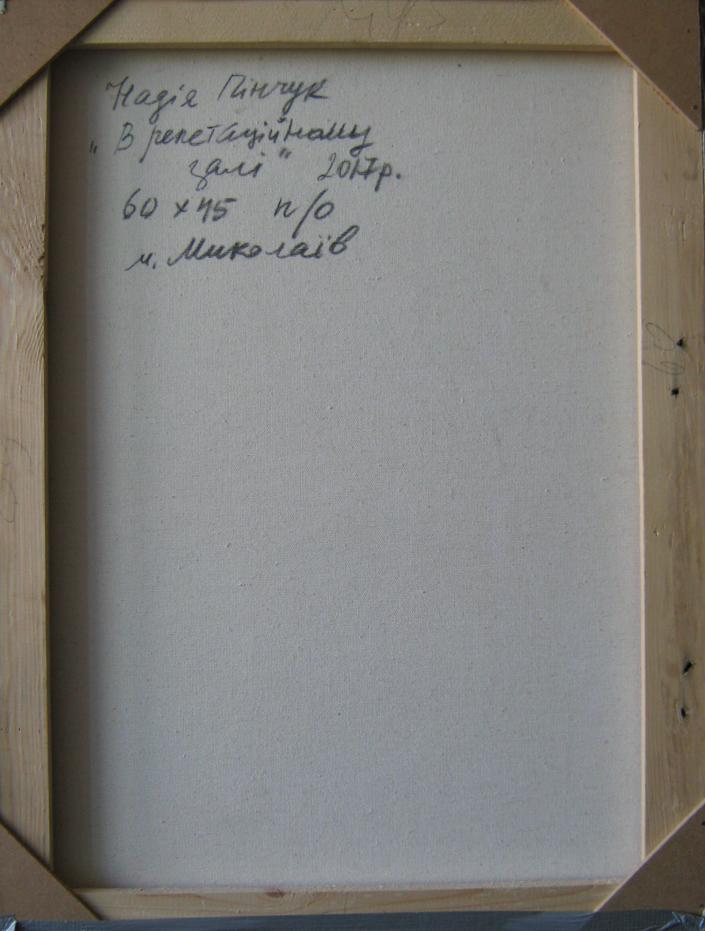 Надія Пінчук
„В репетаційному
залі" 2017р.
60 x 45 п/о
м. Миколаїв